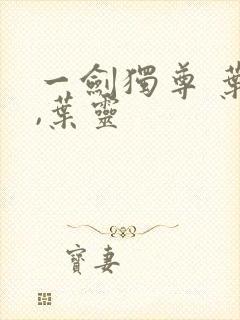 一劍獨尊 葉
,葉靈
寶妻